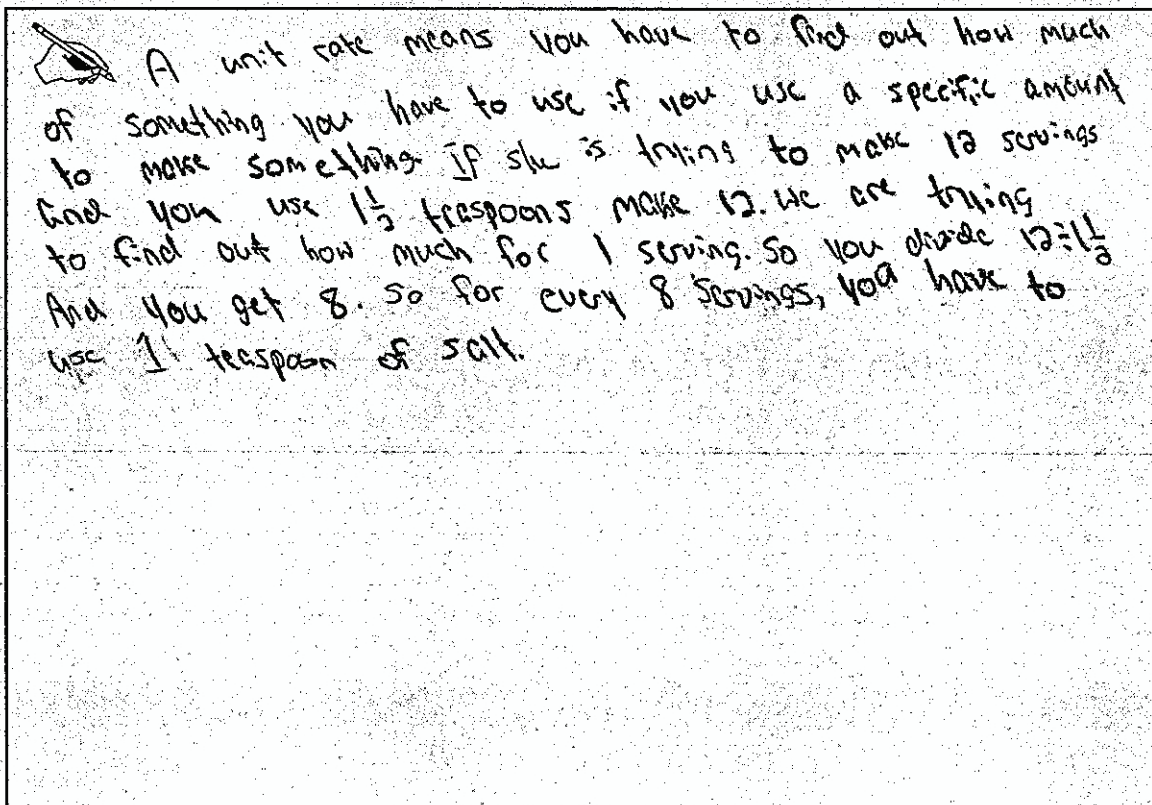 A unit rate means you have to find out how much
of something you have to use if you use a specific amount
to make something. If she is trying to make 12 servings
and you use 1 1/2 teaspoons make 12. we are trying
to find out how much for 1 serving. So you divide 12÷1 1/2
And you get 8. So for every 8 servings, you have to
use 1 teaspoon of salt.